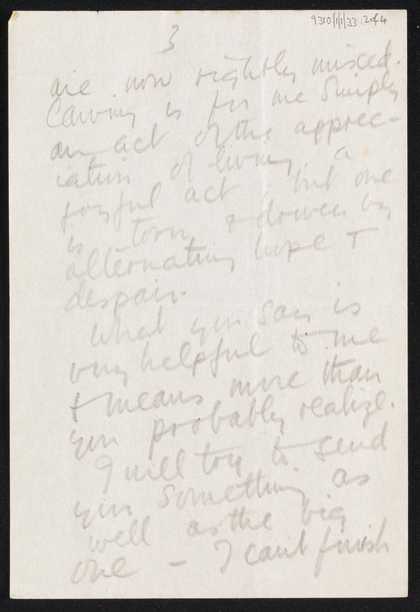 9310/1/1/33 2of4
3
are now rightly mixed.
Carving is for me simply
an act of the apprec-
iation of living, a
joyful act, but one
is torn & driven by
alternating hope +
despair.
What you say is
very helpful to me
+ means more than
you probably realize.
I will try to send
you something as
well as the big
one – I can't finish